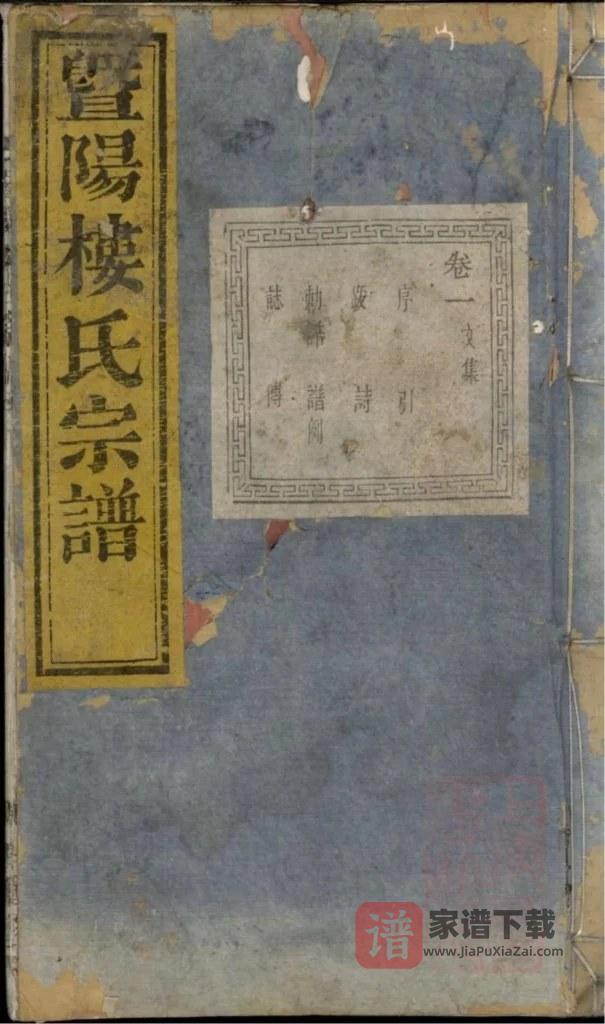 暨陽樓氏宗譜
卷一 文集
序 引
跋 詩
勅誥 譜例
誌 傳
谱 家谱下载
www.JiaPuXiaZai.com